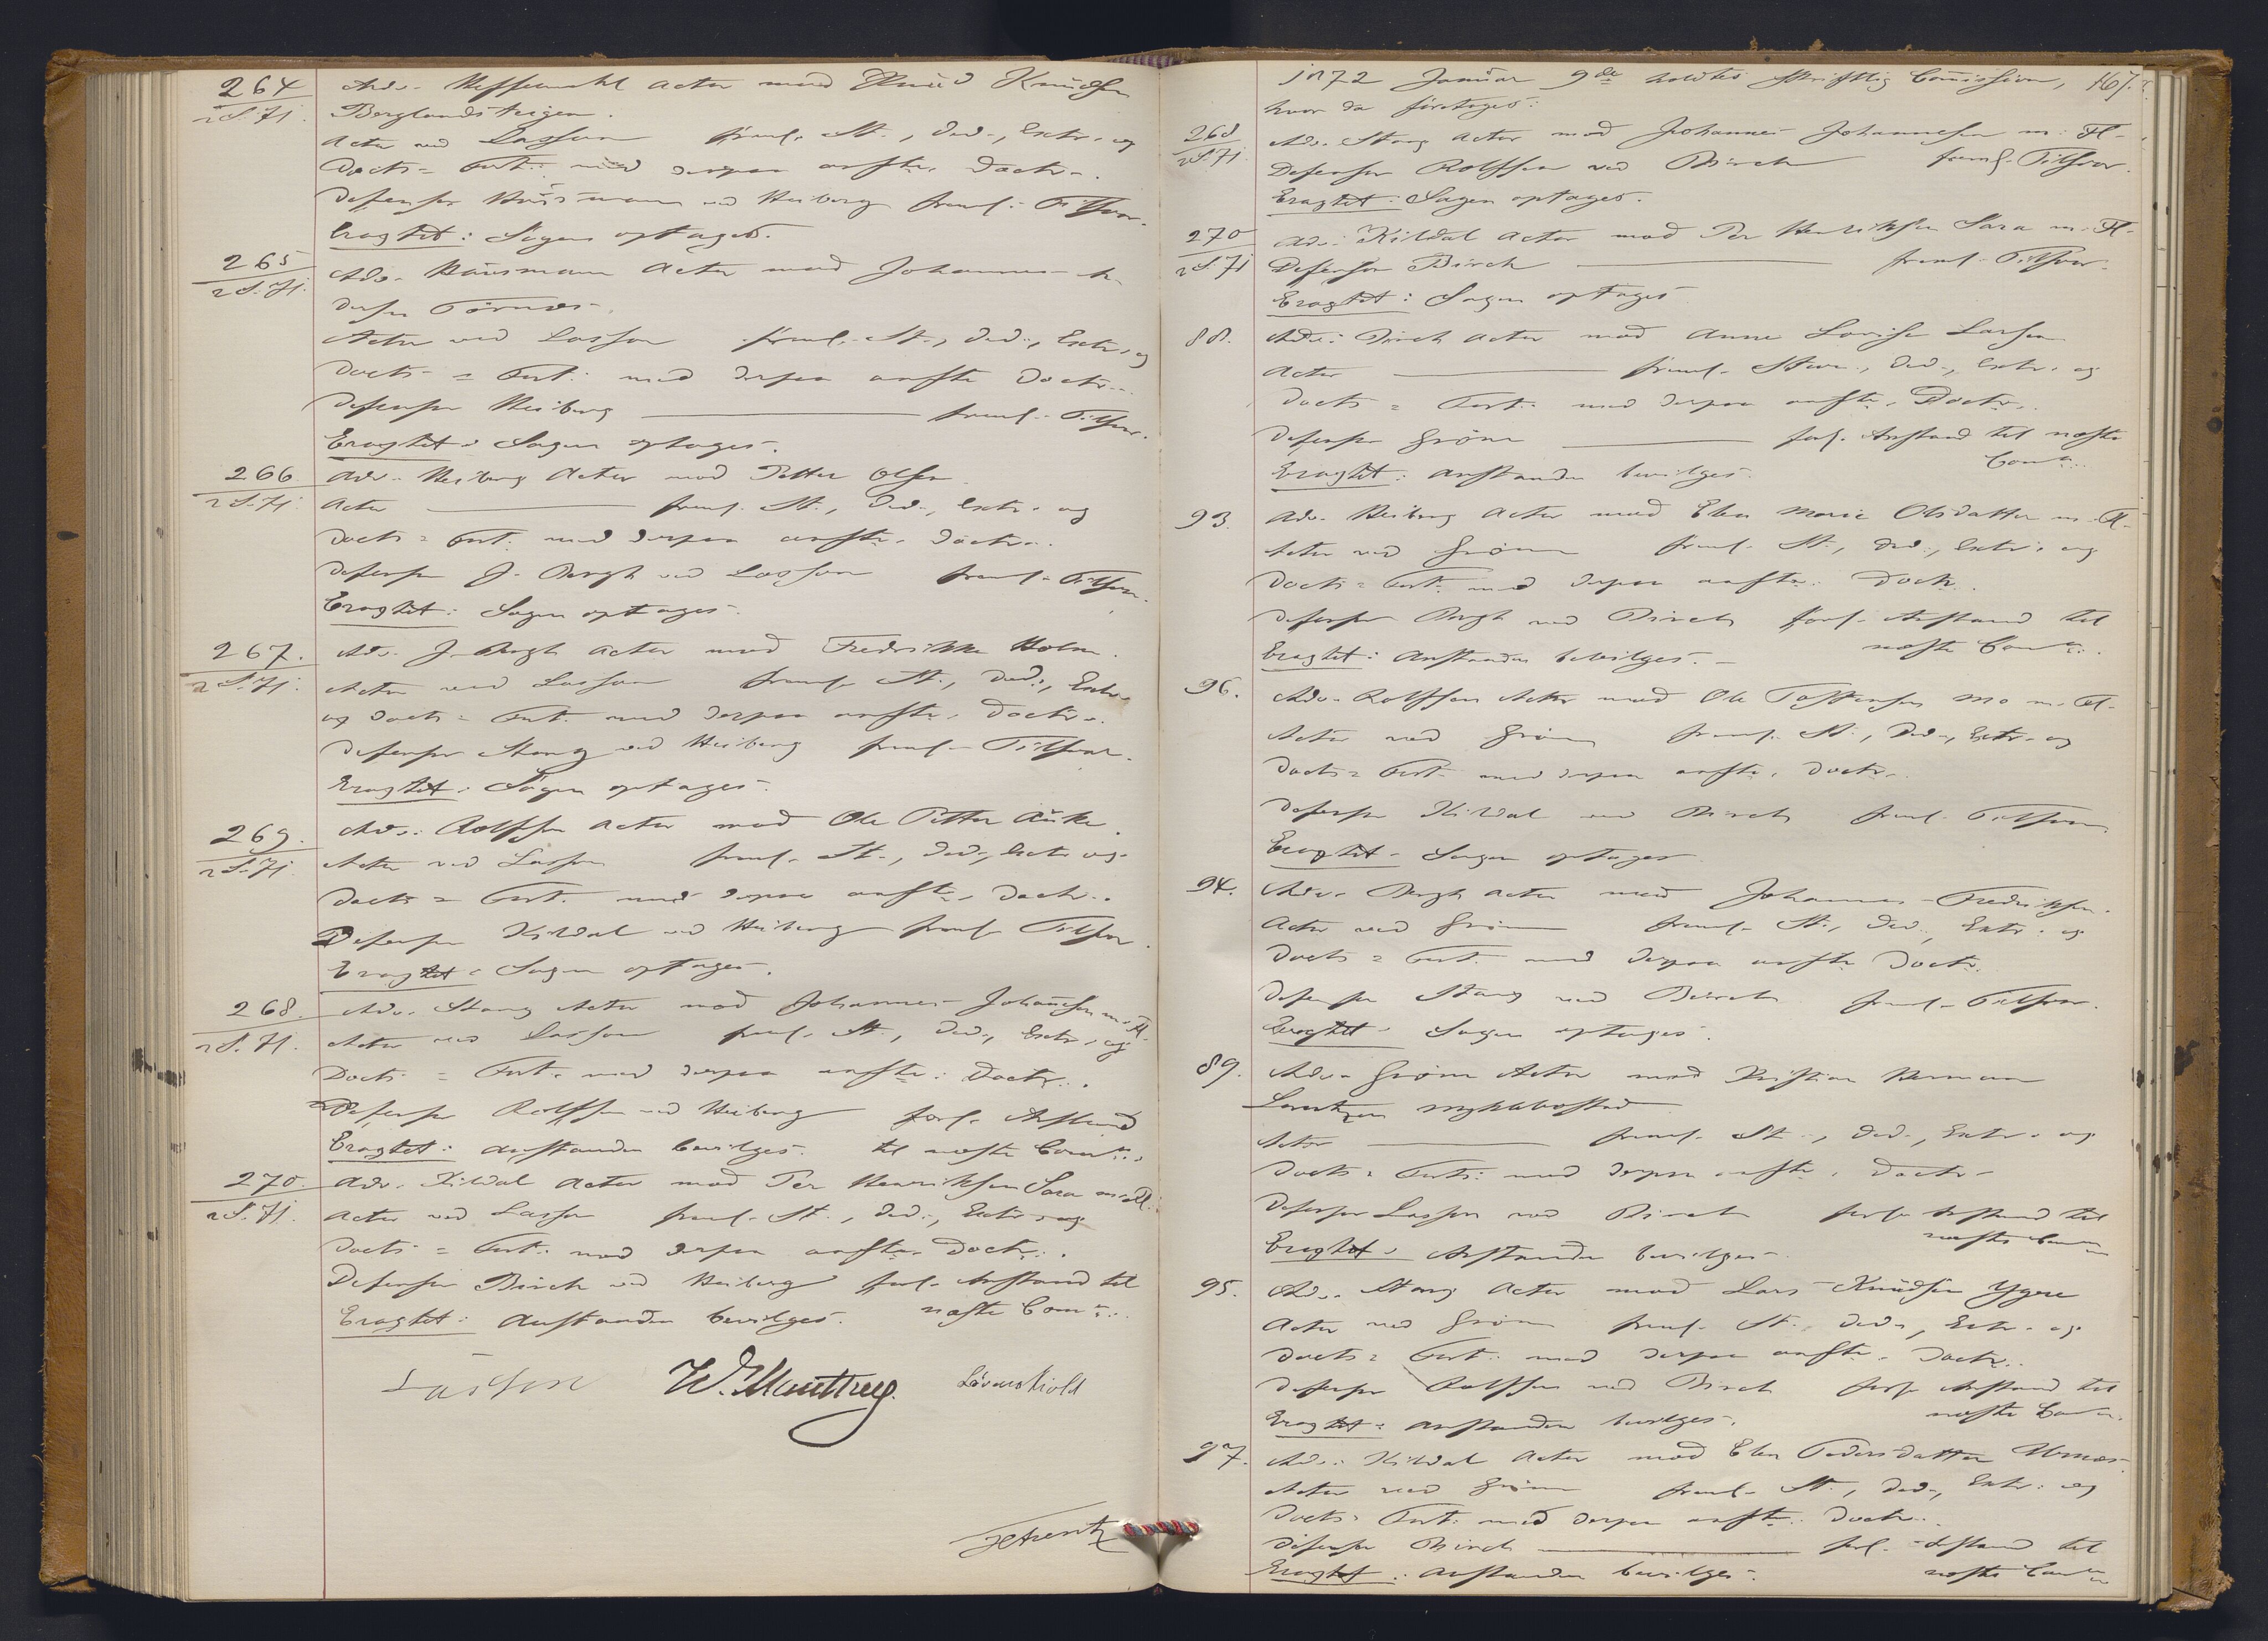 264 Adv. Hesselmahl Actor mod Knud Knudsen
2 S. 71. Berglandsteigen.
Actor ved Lasson freml. St., Ded., Extr. og
Docts = Fort. med derpaa anfte. Doctr.
Defensor Husmann ved Heiberg freml. Tilsvar.
Eragtet: Sagen optages.
265 Adv. Husmann Actor mod Johannes
2 S. 71. Tørnæs.
Actor ved Lasson freml. St., Ded., Extr. og
Docts = Fort. med derpaa anfte Doctr.
Defensor Heiberg freml. Tilsvar.
Eragtet: Sagen optages.
266 Adv. Heiberg Actor mod Petter Olsen
2 S. 71. Actor freml. St., Ded., Extr. og
Docts = Fort. med derpaa anfte. Doctr.
Defensor J. Bergh ved Lasson freml. Tilsvar.
Eragtet: Sagen optages.
267. Adv. J. Bergh Actor mod Fredrikke Holm.
2 S. 71. Actor ved Lasson freml. St., Ded., Extr.
og Docts = Fort. med derpaa anfte. Doctr.
Defensor Stang ved Heiberg freml. Tilsvar.
Eragtet: Sagen optages.
269. Adv. Rolfsen Actor mod Ole Petter Auke.
2 S. 71. Actor ved Lasson freml. St., Ded., Extr. og
Docts = Fort. med derpaa anfte. Doctr.
Defensor Kildal ved Heiberg freml. Tilsvar.
Eragtet: Sagen optages.
268. Adv. Stang Actor mod Johannes Johannesen m. Fl.
2 S. 71. Actor ved Lasson freml. St., Ded., Extr. og
Docts = Fort. med derpaa anfte. Doctr.
Defensor Rolfsen ved Heiberg forl. Anstand
Eragtet: Anstanden bevilges. til næste Comn.
270. Adv. Kildal Actor mod Per Henriksen Sara m. Fl.
2 S. 71. Actor ved Lasson freml. St., Ded., Extr. og
Docts = Fort. med derpaa anfte. Doctr.
Defensor Birch ved Heiberg forl. Anstand til
Eragtet: Anstanden bevilges. næste Comn.
Lasson W. Manthey. Løvenskiold
1872 Januar 9de holdtes skriftlig Commission, 167.
hvor da foretoges:
268 Adv. Stang Actor mod Johannes Johannesen m. Fl.
2 S. 71. Defensor Rolfsen ved Birch freml. Tilsvar.
Eragtet: Sagen optages.
270 Adv. Kildal Actor mod Per Henriksen Sara m. Fl.
2 S. 71 Defensor Birch freml. Tilsvar.
Eragtet: Sagen optages
88. Adv. Birch Actor mod Anne Lovise Larsen
Actor freml. Stevn., Ded., Extr. og
Docts = Fort. med derpaa anfte. Doctr.
Defensor Grønn forl. Anstand til næste
Eragtet: Anstanden bevilges. Comn.
93. Adv. Heiberg Actor mod Elen Marie Olsdatter m. Fl.
Actor ved Grønn freml. St., Ded., Extr. og
Docts = Fort. med derpaa anfte. Doctr.
Defensor Bergh ved Birch forl. Anstand til
Eragtet: Anstanden bevilges. næste Comn.
96. Adv. Rolfsen Actor mod Ole Tostensen Mo m. Fl.
Actor ved Grønn freml. St., Ded., Extr. og
Docts = Fort. med derpaa anfte. Doctr.
Defensor Kildal ved Birch freml. Tilsvar.
Eragtet: Sagen optages
94. Adv. Bergh Actor mod Johannes Fredriksen.
Actor ved Grønn freml. St., Ded., Extr. og
Docts = Fort. med derpaa anfte Doctr.
Defensor Stang ved Birch freml. Tilsvar.
Eragtet: Sagen optages.
89. Adv. Grønn Actor mod Kristian Herman
Lorentzen Myklebostad
Actor freml. St., Ded., Extr. og
Docts = Fort. med derpaa anfte. Doctr.
Defensor Lasson ved Birch forl. Anstand til
Eragtet: Anstanden bevilges. næste Comn.
95. Adv. Stang Actor mod Lars Knudsen Ygre
Actor ved Grønn freml. St., Ded., Extr. og
Docts = Fort. med derpaa anfte. Doctr.
Defensor Rolfsen ved Birch forl. Anstand til
Eragtet: Anstanden bevilges. næste Comn.
97. Adv. Kildal Actor mod Elen Pedersdatter
Actor ved Grønn freml. St., Ded., Extr. og
Docts = Fort. med derpaa anfte. Doctr.
Defensor Birch forl. Anstand til
Eragtet: Anstanden bevilges. næste Comn.